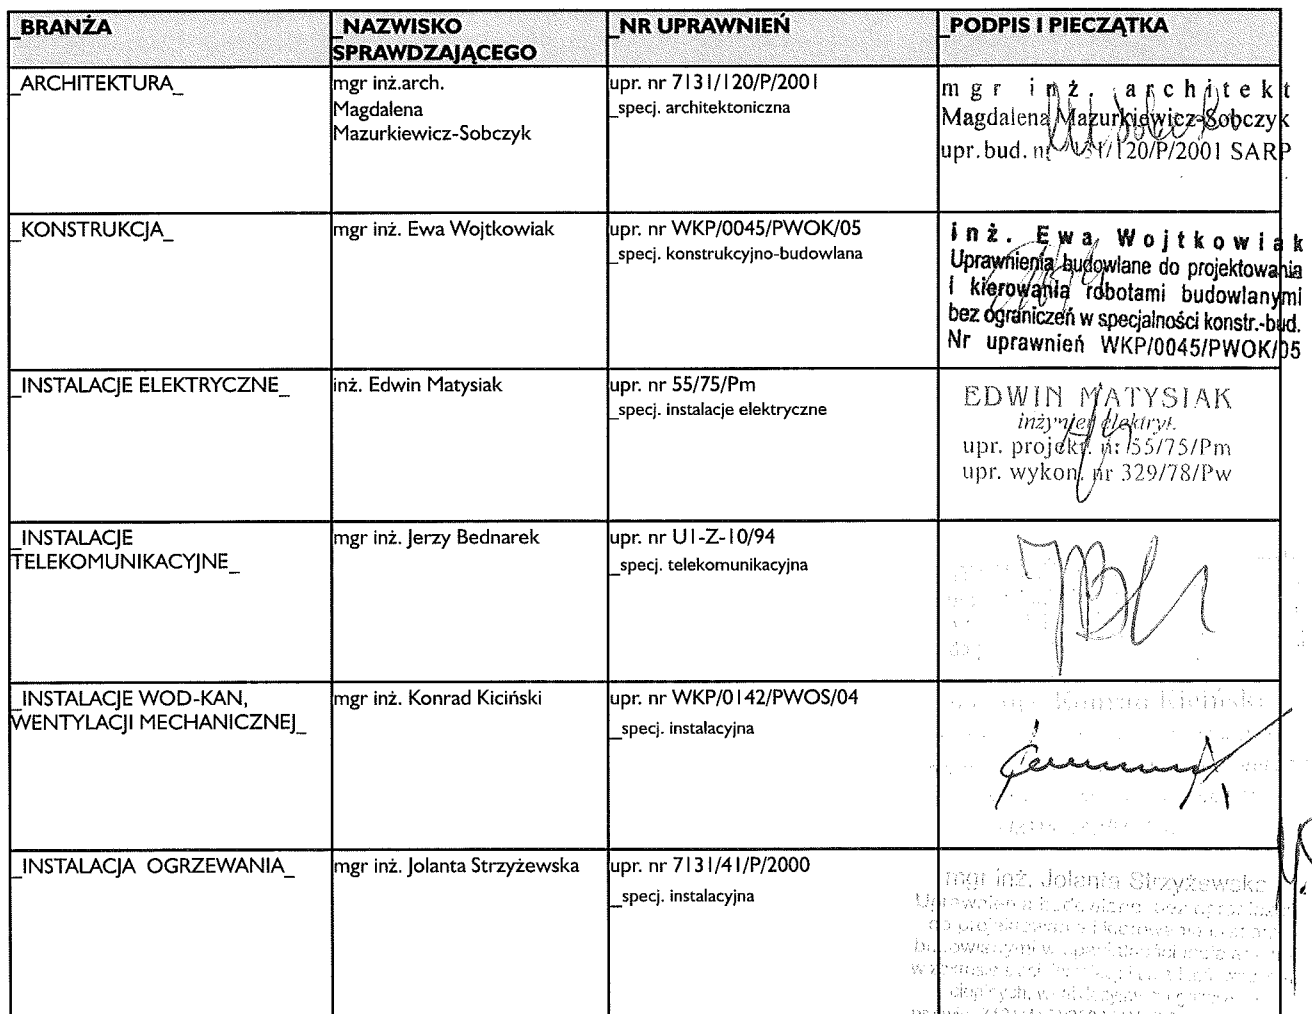 _BRANŻA
_NAZWISKO
SPRAWDZAJĄCEGO
_NR UPRAWNIEŃ
_PODPIS I PIECZĄTKA
_ARCHITEKTURA_
mgr inż.arch.
Magdalena
Mazurkiewicz-Sobczyk
upr. nr 7131/120/P/2001
_specj. architektoniczna
mgr inż. architekt
Magdalena Mazurkiewicz-Sobczyk
upr.bud. nr 7131/120/P/2001 SARP
_KONSTRUKCJA_
mgr inż. Ewa Wojtkowiak
upr. nr WKP/0045/PWOK/05
_specj. konstrukcyjno-budowlana
inż. Ewa Wojtkowiak
Uprawnienia budowlane do projektowania
i kierowania robotami budowlanymi
bez ograniczeń w specjalności konstr.-bud.
Nr uprawnień WKP/0045/PWOK/05
_INSTALACJE ELEKTRYCZNE_
inż. Edwin Matysiak
upr. nr 55/75/Pm
_specj. instalacje elektryczne
EDWIN MATYSIAK
inżynier elektryk
upr. projekt. nr 55/75/Pm
upr. wykon. nr 329/78/Pw
_INSTALACJE
TELEKOMUNIKACYJNE_
mgr inż. Jerzy Bednarek
upr. nr U1-Z-10/94
_specj. telekomunikacyjna
_INSTALACJE WOD-KAN,
WENTYLACJI MECHANICZNEJ_
mgr inż. Konrad Kiciński
upr. nr WKP/0142/PWOS/04
_specj. instalacyjna
Konrad Kiciński
_INSTALACJA OGRZEWANIA_
mgr inż. Jolanta Strzyżewska
upr. nr 7131/41/P/2000
_specj. instalacyjna
mgr inż. Jolanta Strzyżewska